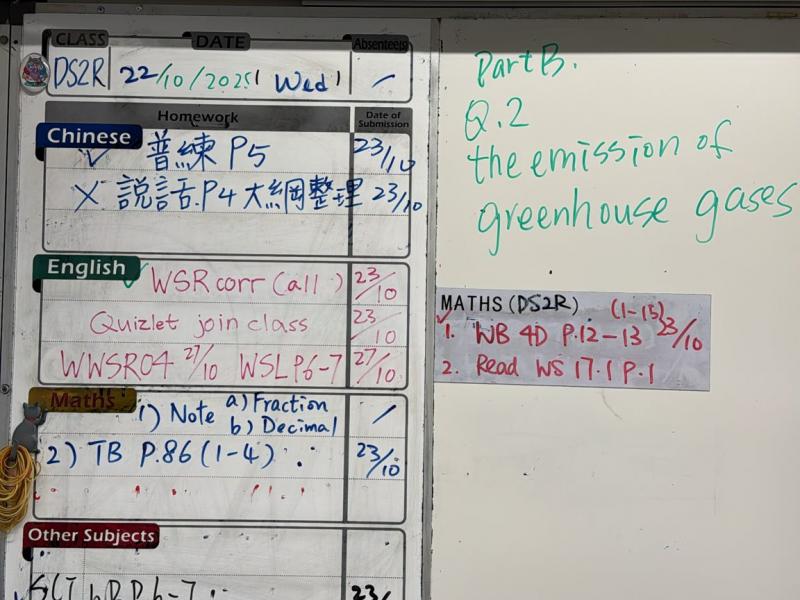 CLASS DATE Absentee(s)
DS2R 22/10/2025 (Wed)
Homework Date of Submission
Chinese
普練 P5 23/10
説話.P4 大綱整理 23/10
English
WSR corr (all) 23/10
Quizlet join class 23/10
WWSR04 27/10 WSL P6-7 27/10
Maths
1) Note a) Fraction
b) Decimal
2) TB P.86 (1-4) 23/10
Other Subjects
Part B.
Q.2
the emission of
greenhouse gases
MATHS (DS2R) (1-15)
1. WB 4D P.12-13 23/10
2. Read WS 17.1 P.1